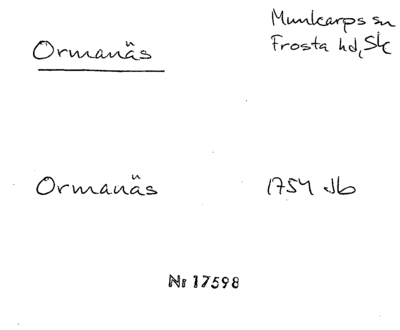 Ormanäs
Munkarps sn
Frosta hd, Sk
Ormanäs
1754 Jb
Nr 17598